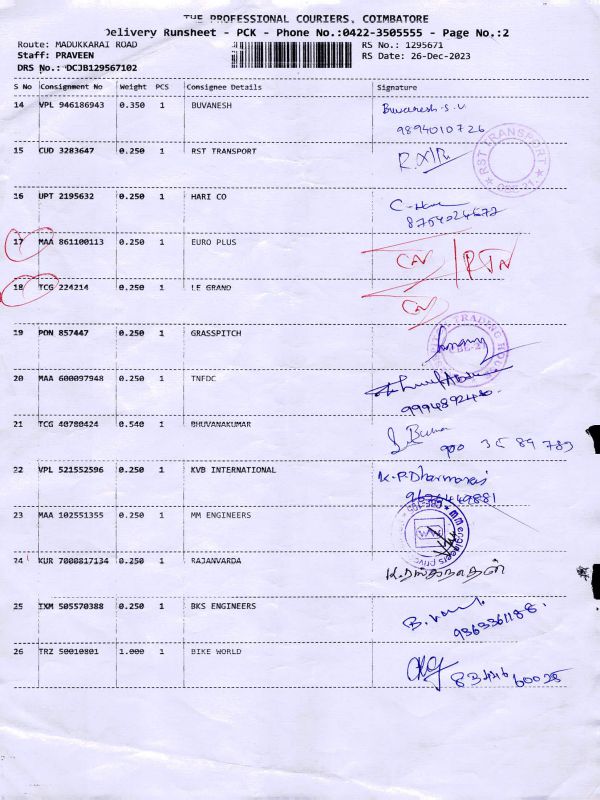 THE PROFESSIONAL COURIERS, COIMBATORE
Delivery Runsheet - PCK - Phone No.:0422-3505555 - Page No.:2
Route: MADUKKARAI ROAD RS No.: 1295671
Staff: PRAVEEN RS Date: 26-Dec-2023
DRS No.: DCJB129567102
S No Consignment No Weight PCS Consignee Details Signature
14 VPL 946186943 0.350 1 BUVANESH Buvanesh.S.V
9894010726
15 CUD 3283647 0.250 1 RST TRANSPORT
RST TRANSPORT
16 UPT 2195632 0.250 1 HARI CO
8754024672
17 MAA 861100113 0.250 1 EURO PLUS CN / RTN
18 TCG 224214 0.250 1 LE GRAND CN
19 PON 857447 0.250 1 GRASSPITCH
TRADING HOUSE
20 MAA 600097948 0.250 1 TNFDC
21 TCG 40780424 0.540 1 BHUVANAKUMAR
22 VPL 521552596 0.250 1 KVB INTERNATIONAL K.P.Dharmaraj
23 MAA 102551355 0.250 1 MM ENGINEERS
24 KUR 7000817134 0.250 1 RAJANVARDA
25 IXM 505570388 0.250 1 BKS ENGINEERS
9363361188.
26 TRZ 50010801 1.000 1 BIKE WORLD